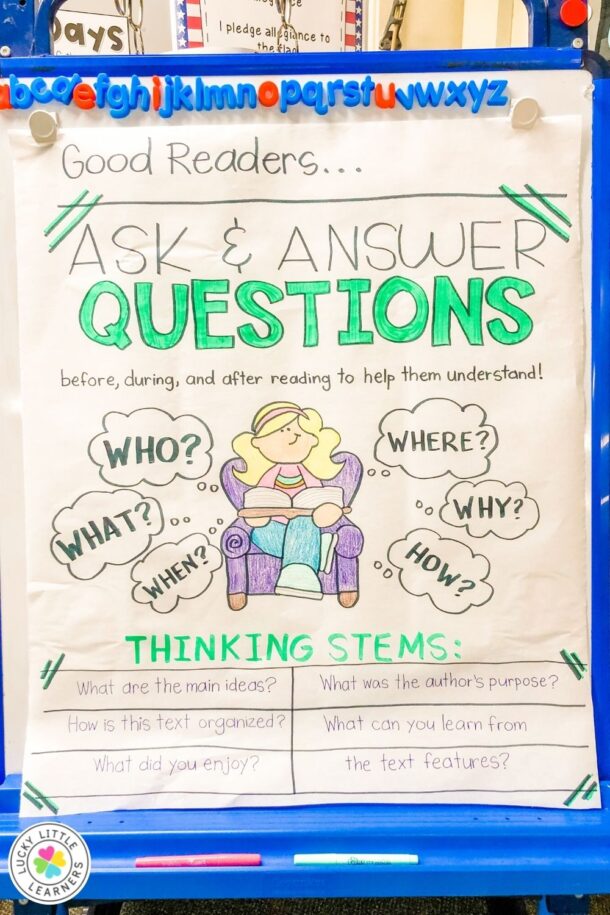 Days
I pledge allegiance to
the flag
abcdefghijklmnopqrstuvwxyz
Good Readers...
ASK & ANSWER
QUESTIONS
before, during, and after reading to help them understand!
WHO?
WHERE?
WHAT?
WHY?
WHEN?
HOW?
THINKING STEMS:
What are the main ideas?
What was the author's purpose?
How is this text organized?
What can you learn from
What did you enjoy?
the text features?
LUCKY LITTLE LEARNERS